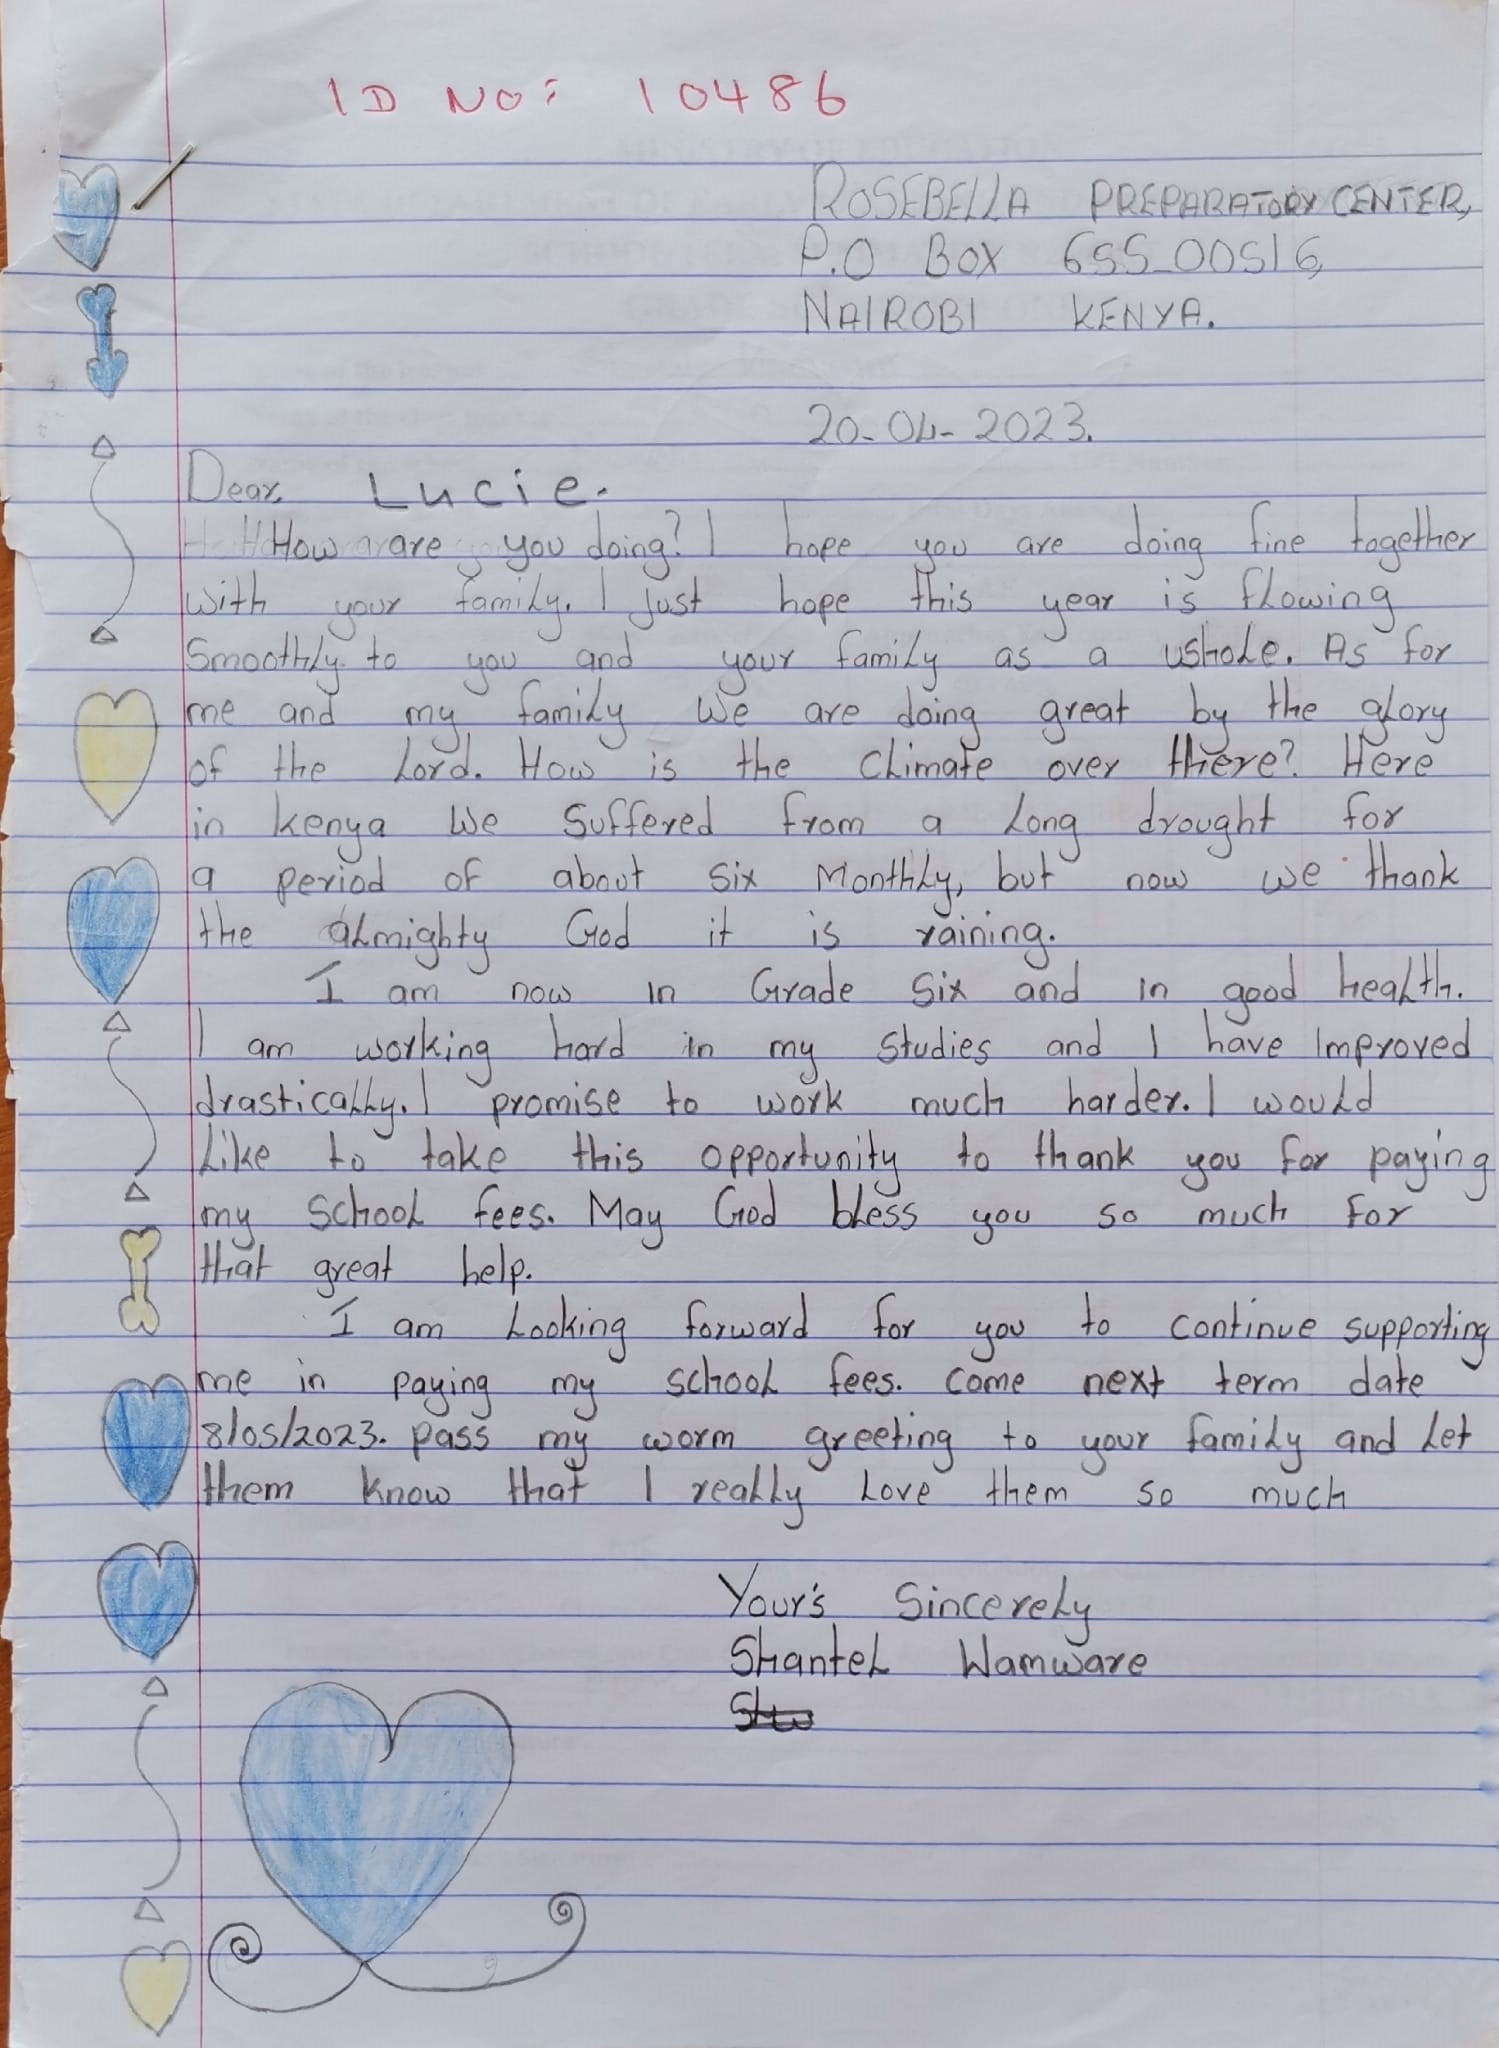 ID NO: 10486
ROSEBELLA PREPARATORY CENTER,
P.O BOX 655_00516,
NAIROBI KENYA.
20-04-2023.
Dear, Lucie.
How are you doing? I hope you are doing fine together
with your family. I just hope this year is flowing
Smoothly to you and your family as a whole. As for
me and my family we are doing great by the glory
of the Lord. How is the climate over there? Here
in kenya we suffered from a long drought for
a period of about six Monthly, but now we thank
the almighty God it is raining.
I am now in Grade Six and in good health.
I am working hard in my studies and I have improved
drastically. I promise to work much harder. I would
Like to take this opportunity to thank you for paying
my school fees. May God bless you so much for
that great help.
I am Looking forward for you to continue supporting
me in paying my school fees. come next term date
8/05/2023. pass my worm greeting to your family and let
them know that I really love them so much
Your's Sincerely
Shantel Wamware